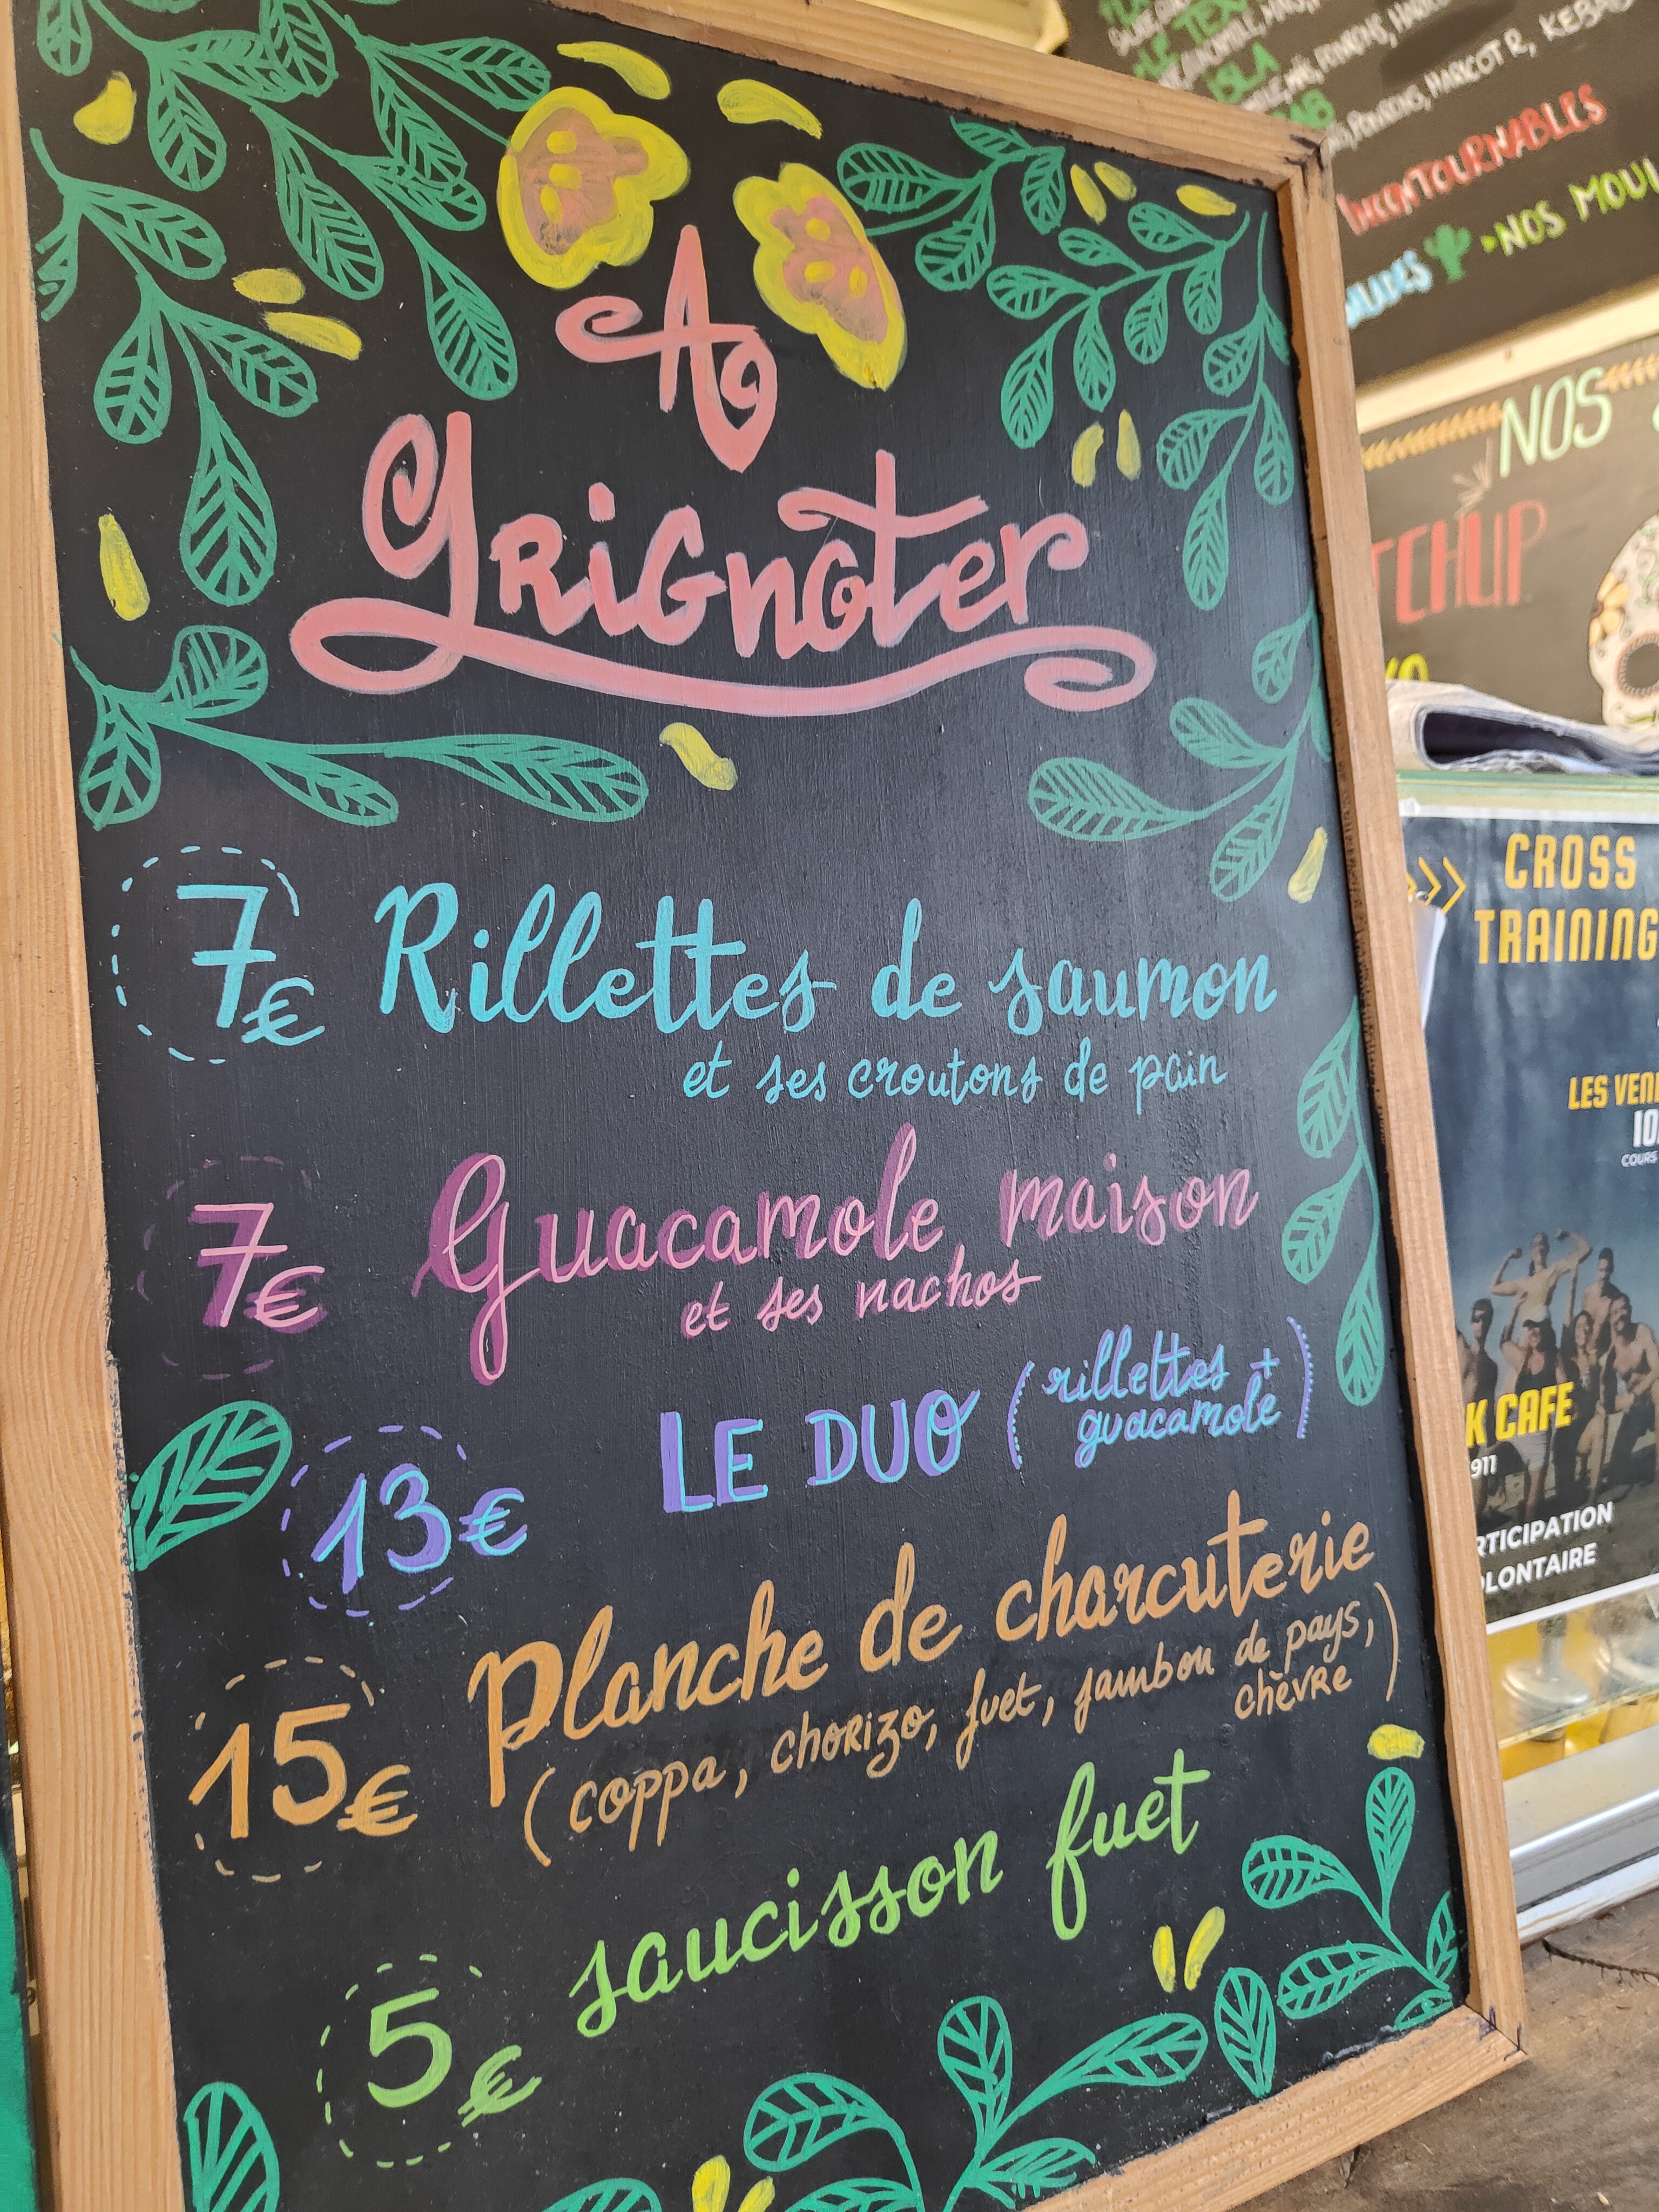 A
Grignoter
7€ Rillettes de saumon
et ses croutons de pain
7€ Guacamole maison
et ses nachos
13€ LE DUO (rillettes +
guacamole)
15€ Planche de charcuterie
(coppa, chorizo, fuet, jambon de pays,
chèvre)
5€ saucisson fuet
HARICOT R, KEBAB
INCONTOURNABLES
NOS
NOS
CROSS
TRAINING
LES
COURS
K CAFE
911